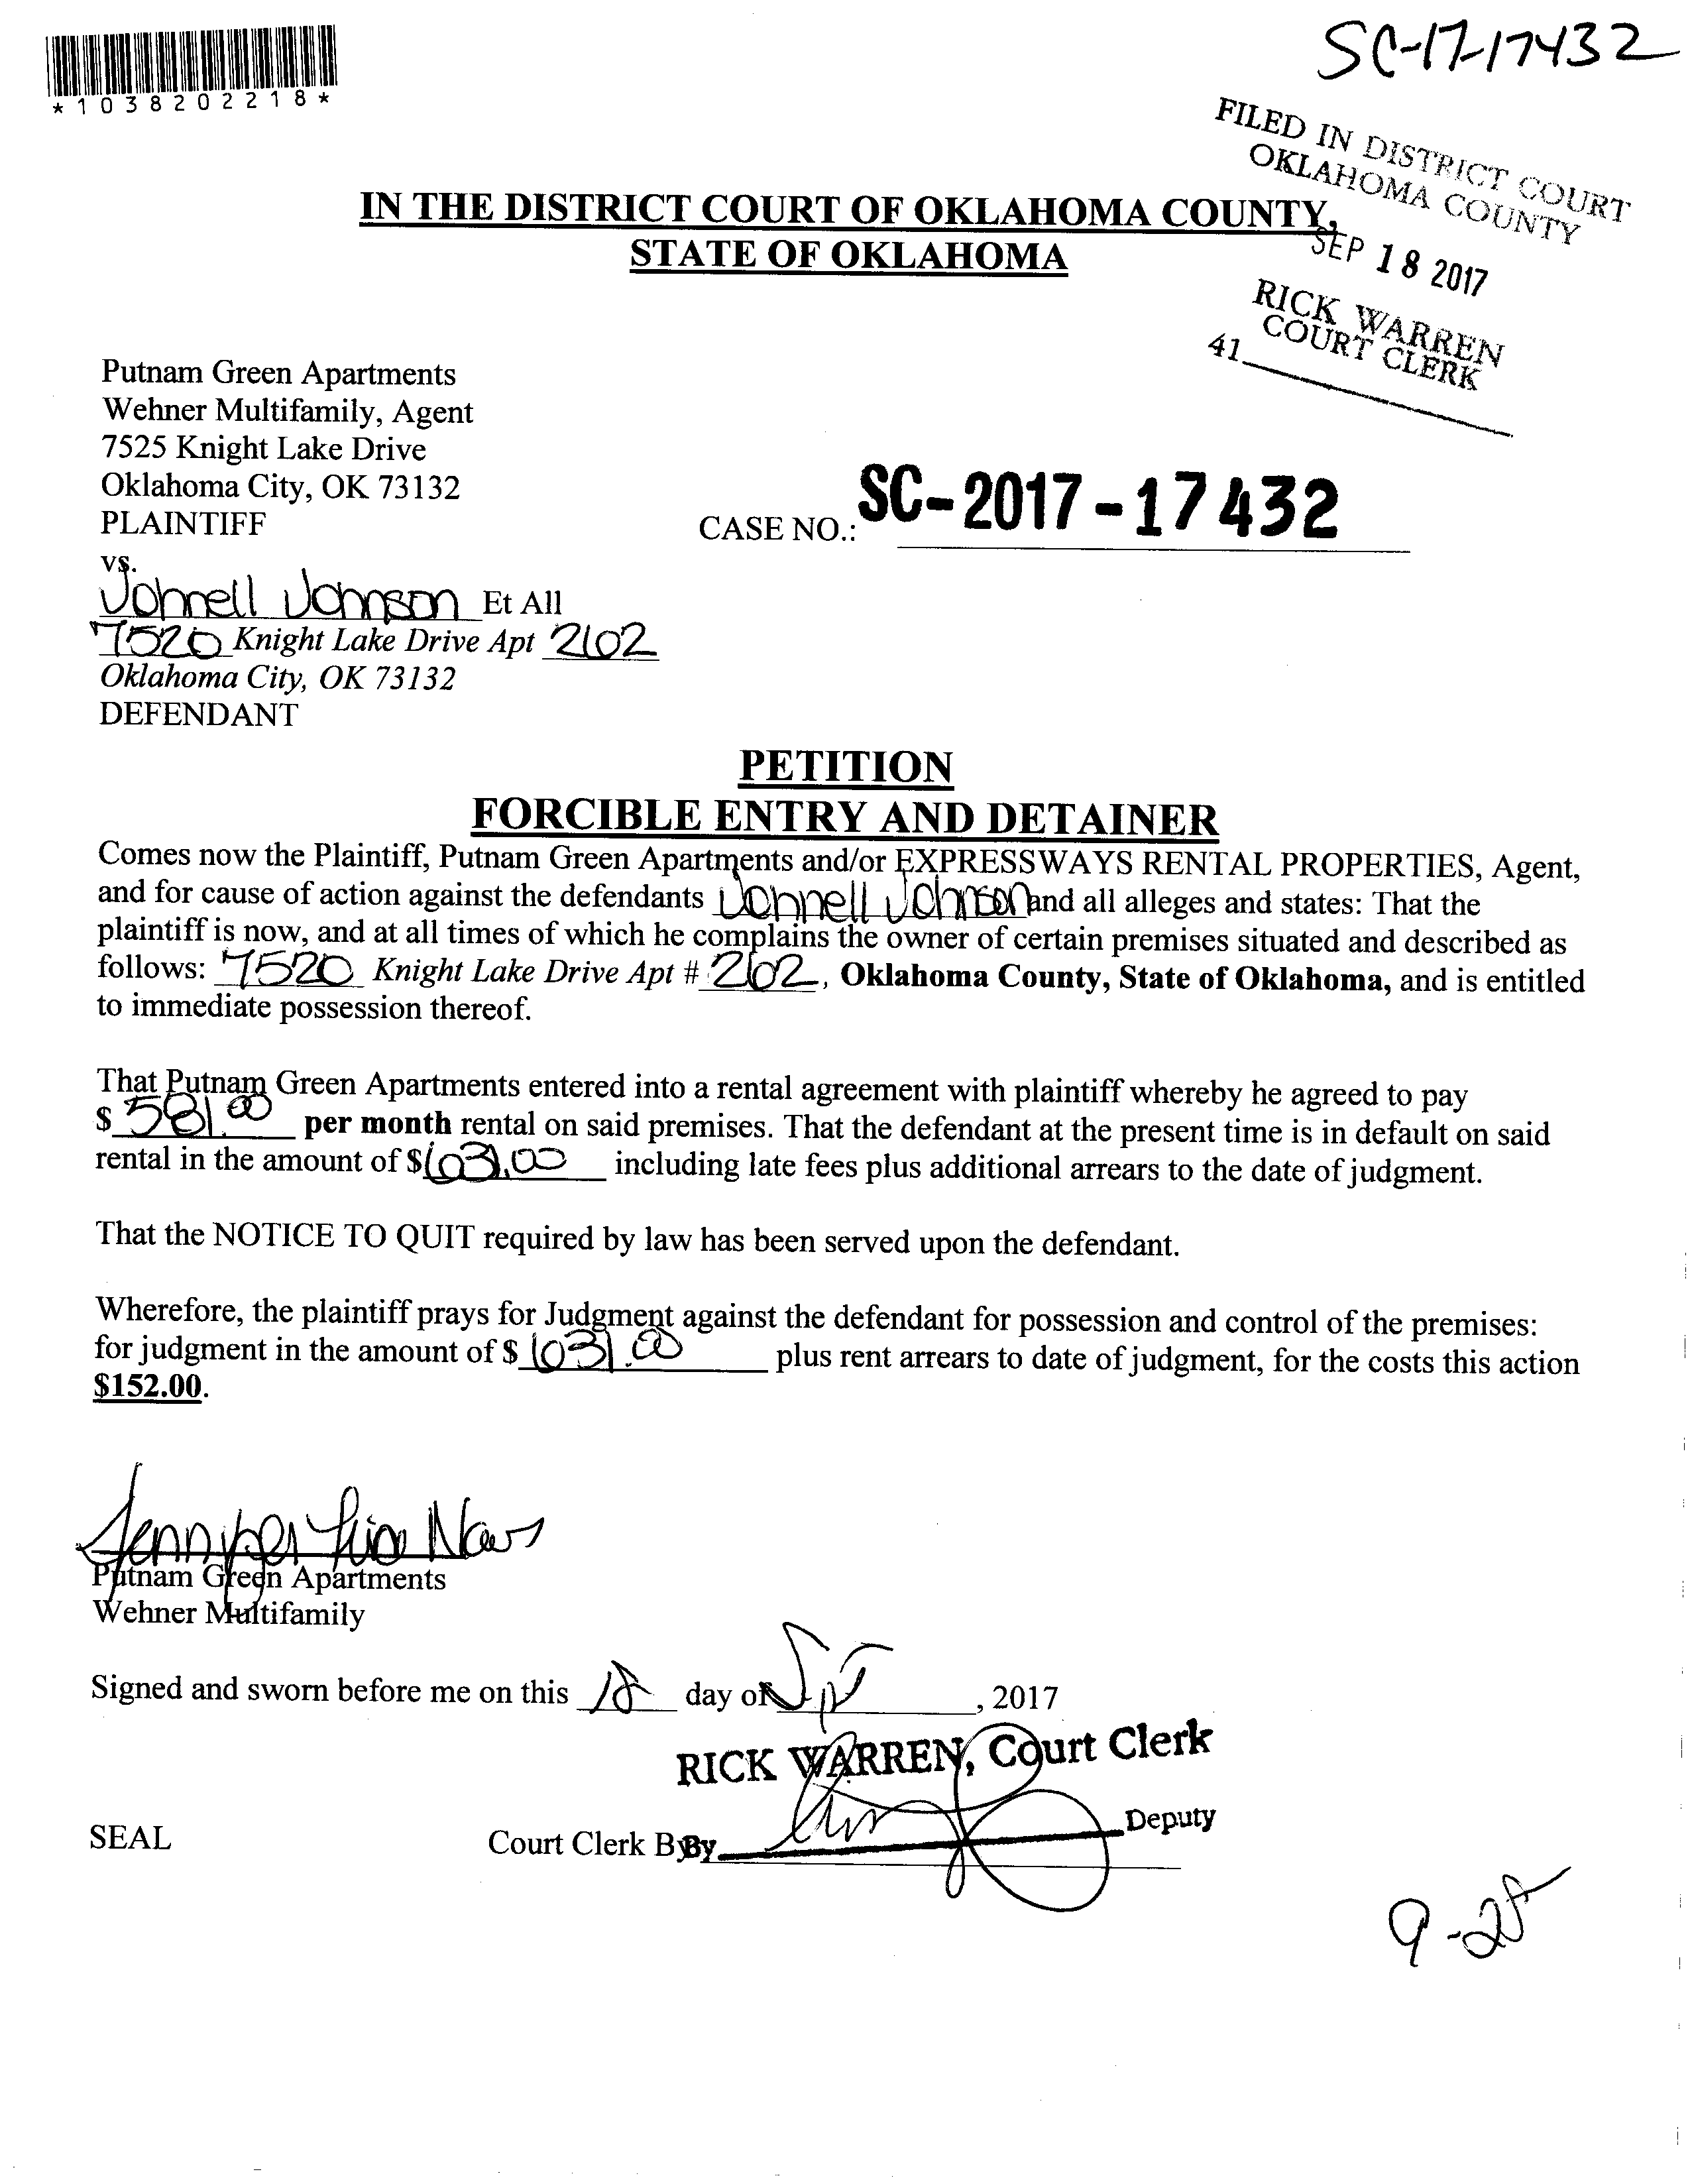 *1038202218*
SC-17-17432
FILED IN DISTRICT COURT
OKLAHOMA COUNTY
IN THE DISTRICT COURT OF OKLAHOMA COUNTY,
STATE OF OKLAHOMA
SEP 18 2017
RICK WARREN
COURT CLERK
41
Putnam Green Apartments
Wehner Multifamily, Agent
7525 Knight Lake Drive
Oklahoma City, OK 73132
PLAINTIFF
CASE NO.: SC-2017-17432
vs.
Johnell Johnson Et All
7520 Knight Lake Drive Apt 2102
Oklahoma City, OK 73132
DEFENDANT
PETITION
FORCIBLE ENTRY AND DETAINER
Comes now the Plaintiff, Putnam Green Apartments and/or EXPRESSWAYS RENTAL PROPERTIES, Agent,
and for cause of action against the defendants Johnell Johnson and all alleges and states: That the
plaintiff is now, and at all times of which he complains the owner of certain premises situated and described as
follows: 7520 Knight Lake Drive Apt # 2102, Oklahoma County, State of Oklahoma, and is entitled
to immediate possession thereof.
That Putnam Green Apartments entered into a rental agreement with plaintiff whereby he agreed to pay
$ 581.00 per month rental on said premises. That the defendant at the present time is in default on said
rental in the amount of $1031.00 including late fees plus additional arrears to the date of judgment.
That the NOTICE TO QUIT required by law has been served upon the defendant.
Wherefore, the plaintiff prays for Judgment against the defendant for possession and control of the premises:
for judgment in the amount of $ 1031.00 plus rent arrears to date of judgment, for the costs this action
$152.00.
Jennifer
Putnam Green Apartments
Wehner Multifamily
Signed and sworn before me on this 18 day of Sept, 2017
RICK WARREN, Court Clerk
SEAL
Court Clerk By By Deputy